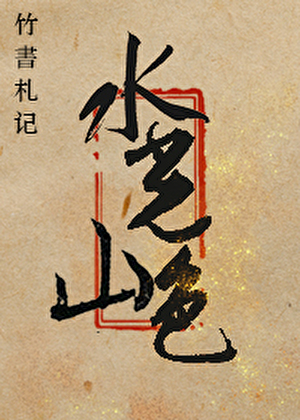 竹書札记
水光山色